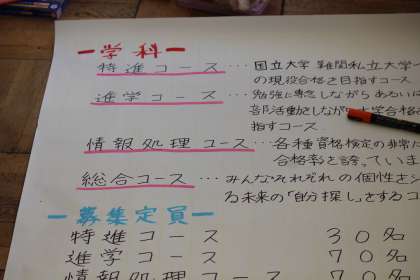 ー学科ー
特進コース … 国立大学 難関私立大学
の現役合格を目指すコース
進学コース … 勉強に専念しながらあるいは
部活動をしながら大学合格
指すコース
情報処理コース … 各種資格検定の非常に
合格率を誇っていき
総合コース … みんなそれぞれの個性を
る未来の「自分探し」をするコ
ー募集定員ー
特進コース 30名
進学コース 70名
情報処理コース 70名